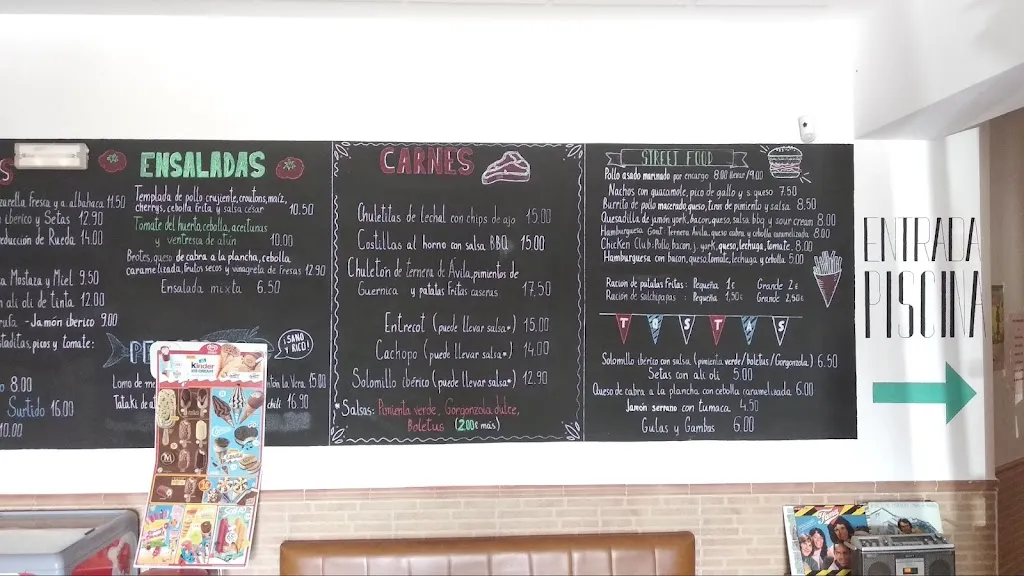 S
zarella fresca y a. albahaca 11.50
iberico y Setas 12.90
educción de Rueda 14.00
a Mostaza y Miel 9.50
on ali oli de tinta 12.00
rufa - Jamón iberico 9.00
staditas, picos y tomate:
8.00
Surtido 16.00
10.00
ENSALADAS
Templada de pollo crujiente, croutons, maíz,
cherrys, cebolla frita y salsa césar 10.50
Tomate del huerto, cebolla, aceitunas
y ventresca de atún 10.00
Brotes, queso de cabra a la plancha, cebolla
caramelizada, frutos secos y vinagreta de fresas 12.90
Ensalada mixta 6.50
PE
¡SANO
Y RICO!
Lomo de me la Vera 15.00
Tataki de a chili 16.90
Kinder
CARNES
Chuletitas de lechal con chips de ajo 15,00
Costillas al horno con salsa BBQ 15.00
Chuletón de ternera de Ávila, pimientos de
Guernica y patatas fritas caseras 17,50
Entrecot (puede llevar salsa*) 15.00
Cachopo (puede llevar salsa*) 14.00
Solomillo ibérico (puede llevar salsa*) 12.90
*Salsas: Pimienta verde, Gorgonzola dulce,
Boletus (2.00€ más)
STREET FOOD
Pollo asado marinado por encargo 8.00 llevar/9.00
Nachos con guacamole, pico de gallo y s. queso 7.50
Burrito de pollo macerado, queso, tiras de pimiento y salsa 8.50
Quesadilla de jamón york, bacon, queso, salsa bbq y sour cream 8.00
Hamburguesa Goat: Ternera Avila, queso cabra y cebolla caramelizada 8.00
Chicken Club: Pollo, bacon, j. york, queso, lechuga, tomate. 8.00
Hamburguesa con bacon, queso, tomate, lechuga y cebolla 5.00
Ración de patatas Fritas: Pequeña 1€ Grande 2€
Ración de salchipapas: Pequeña 1,50€ Grande 2,50€
TOSTAS
Solomillo ibérico con salsa, (pimienta verde/boletus/Gorgonzola) 6.50
Setas con ali oli 5.00
Queso de cabra a la plancha con cebolla caramelizada 6.00
Jamón serrano con tumaca 4.50
Gulas y Gambas 6.00
ENTRADA
PISCINA